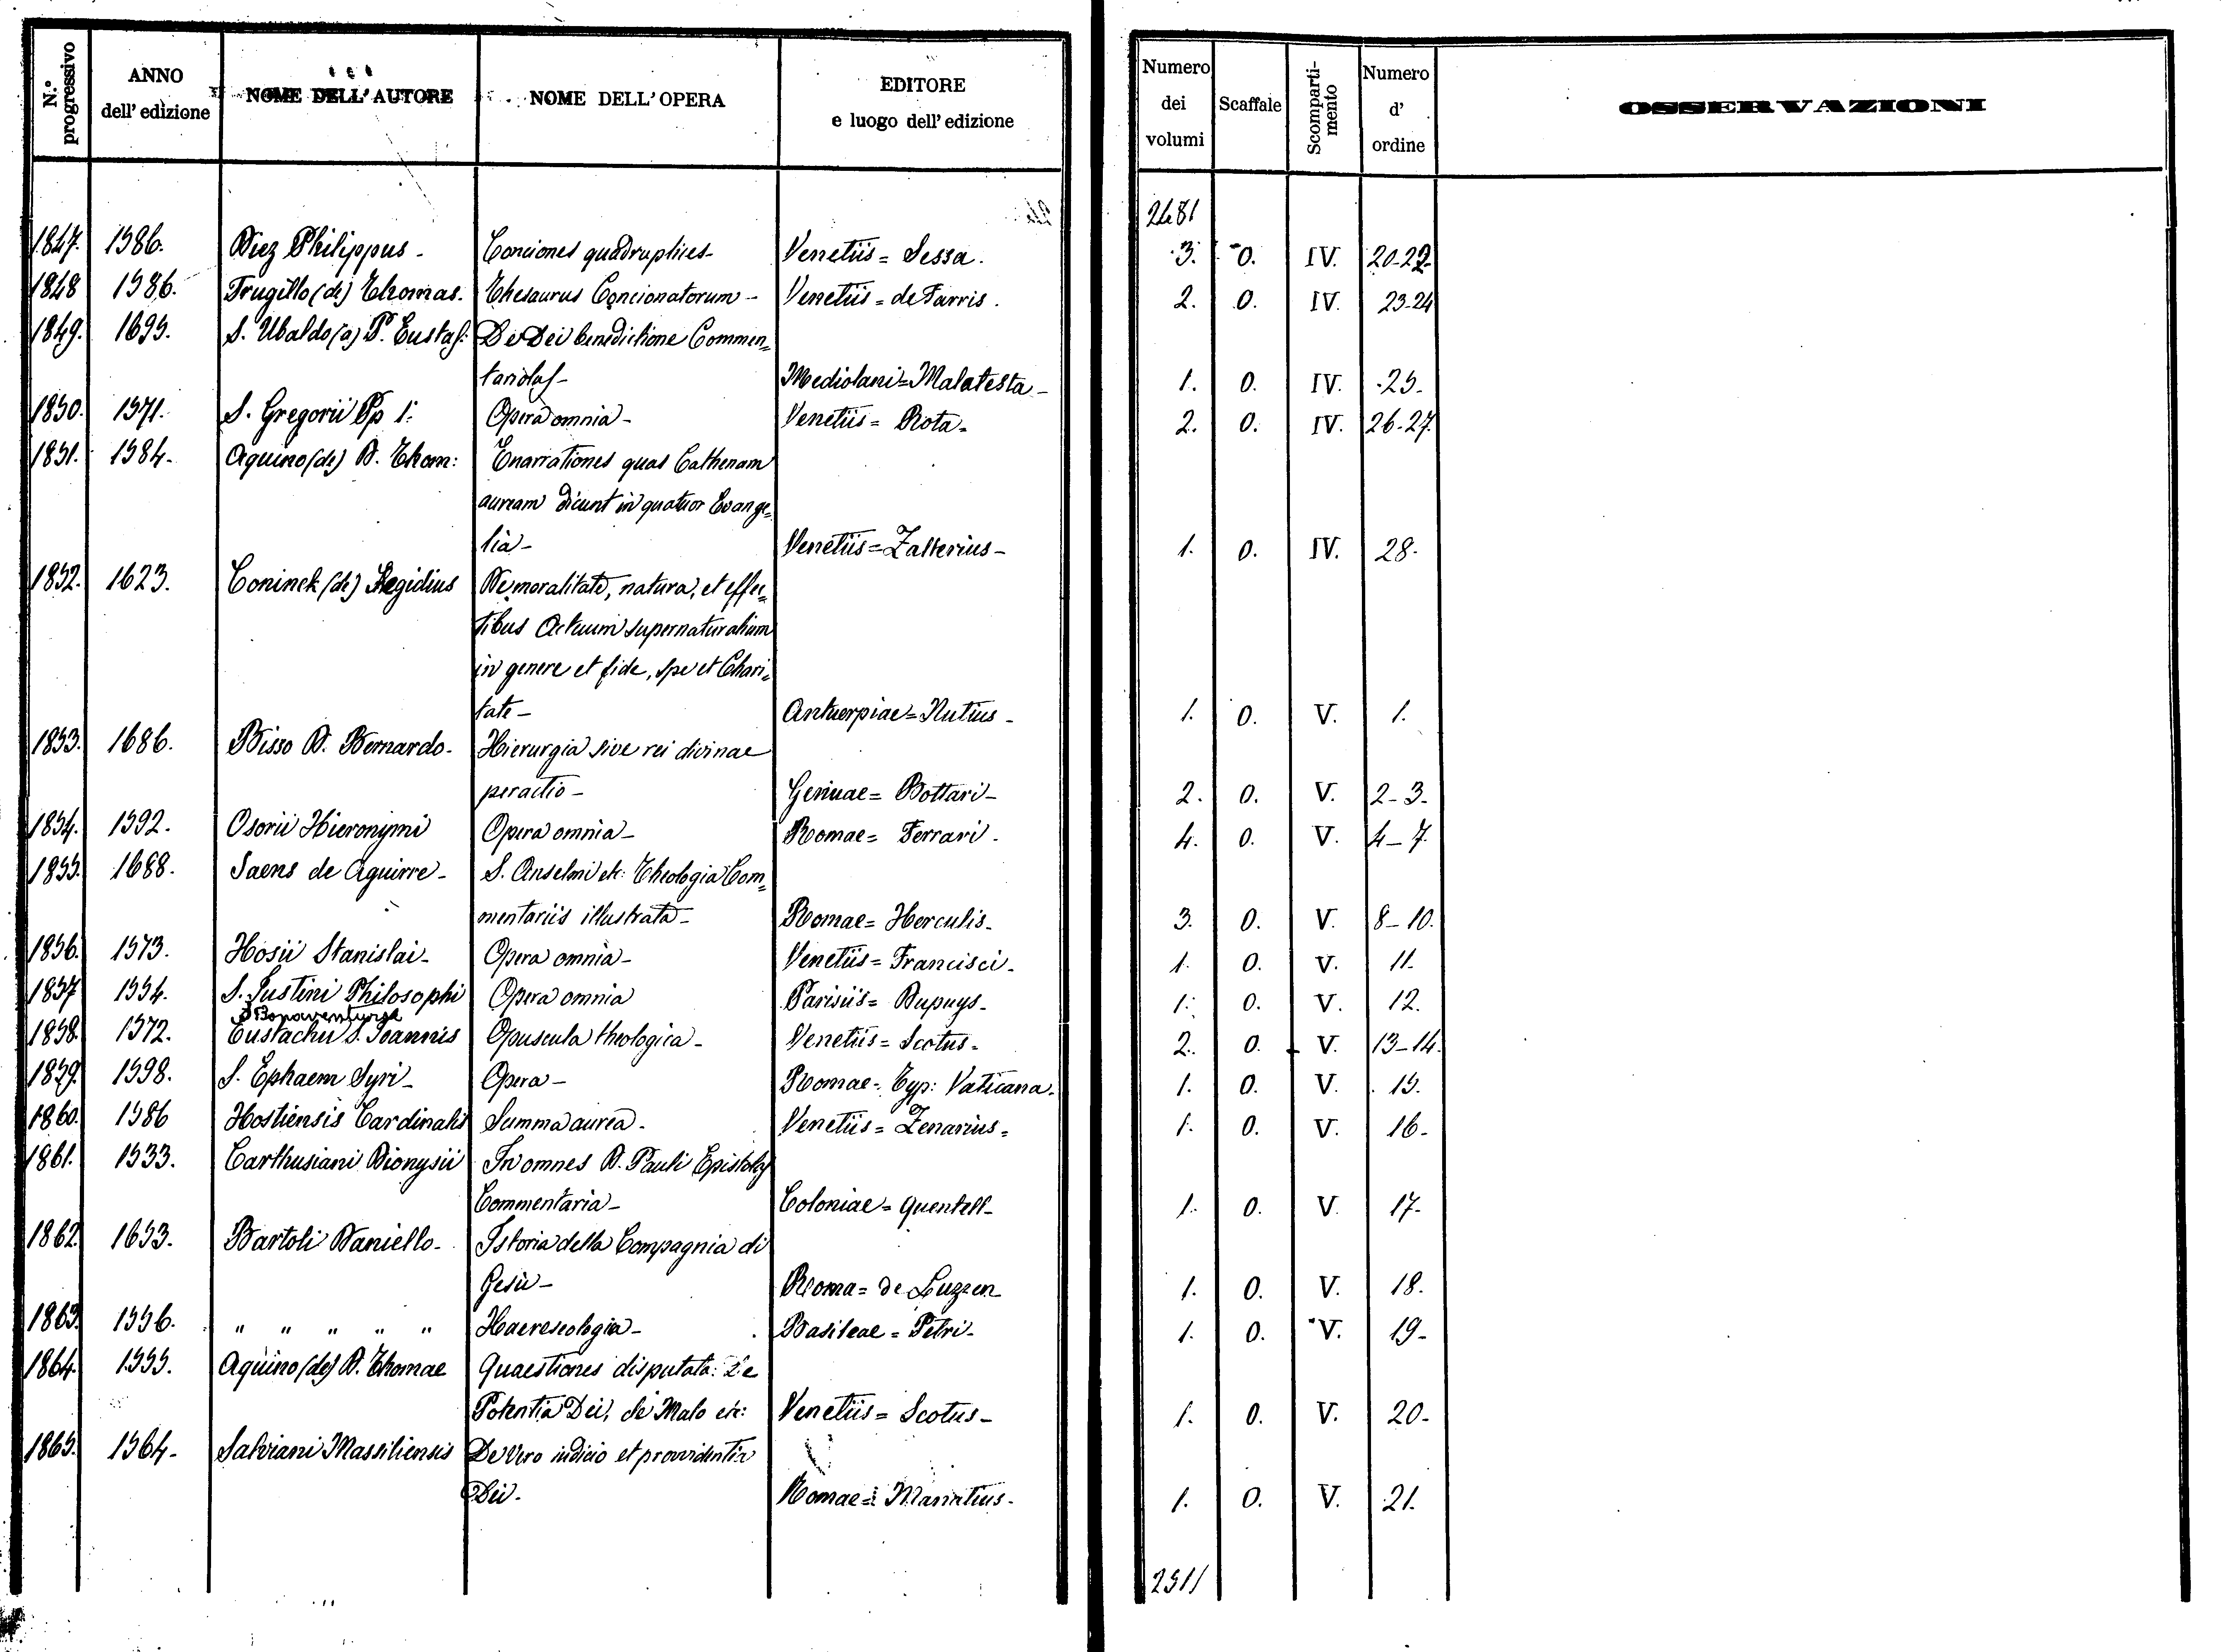 N.° progressivo | ANNO dell' edizione | NOME DELL' AUTORE | NOME DELL' OPERA | EDITORE e luogo dell' edizione | Numero dei volumi | Scaffale | Scomparti-mento | Numero d' ordine | OSSERVAZIONI
2481
1847. 1586. Diez Philippus - Conciones quadruplices - Venetiis = Sessa. 3. 0. IV. 20-22.
1848 1586. Trugillo (de) Thomas. Thesaurus Concionatorum - Venetiis = de Farris. 2. 0. IV. 23-24
1849. 1695. S. Ubaldo (a) P. Eustaf: De Dei benedictione Commen=
tariolus - Mediolani = Malatesta - 1. 0. IV. 25.
1850. 1571. S. Gregorii Pp 1: Opera omnia - Venetiis = Rota - 2. 0. IV. 26-27.
1851. 1584. Aquino (de) D. Thom: Enarrationes quas Cathenam
auream dicunt in quatuor Evange=
lia - Venetiis = Zalterius - 1. 0. IV. 28.
1852. 1623. Coninck (de) Aegidius De moralitate, natura, et effec=
tibus Actuum supernaturalium
in genere et fide, spe et Chari=
tate - Antuerpiae = Nutius - 1. 0. V. 1.
1853. 1686. Bisso D. Bernardo - Hierurgia sive rei divinae
peractio - Genuae = Bottari - 2. 0. V. 2-3.
1854. 1592. Osorii Hieronymi Opera omnia - Romae = Ferrari. 4. 0. V. 4-7.
1855. 1688. Saens de Aguirre - S. Anselmi etc: Theologia Com=
mentariis illustrata - Romae = Herculis. 3. 0. V. 8-10.
1856. 1573. Hosii Stanislai - Opera omnia - Venetiis = Francisci - 1. 0. V. 11.
1857 1554. S. Justini Philosophi Opera omnia Parisiis = Dupuys - 1. 0. V. 12.
S Bonaventurae
1858. 1572. Eustachii S. Joannis Opuscula theologica - Venetiis = Scotus - 2. 0. V. 13-14.
1859. 1598. S. Ephaem Syri - Opera - Romae = Typ: Vaticana. 1. 0. V. 15.
1860. 1586 Hostiensis Cardinalis Summa aurea - Venetiis = Zenarius = 1. 0. V. 16-
1861. 1533. Carthusiani Dionysii In omnes D. Pauli Epistolas
Commentaria - Coloniae = Quentell - 1. 0. V. 17-
1862. 1653. Bartoli Daniello - Istoria della Compagnia di
Gesù - Roma = de Luzzen 1. 0. V. 18.
1863. 1556. " " " " " Haereseologia - Basileae = Petri - 1. 0. V. 19-
1864. 1555. Aquino (de) D. Thomae Quaestiones disputata: De
Potentia Dei, de Malo etc: Venetiis = Scotus - 1. 0. V. 20-
1865. 1564 - Salviani Massiliensis De vero iudicio et provvidentia
Dei. Romae = Manutius - 1. 0. V. 21.
2511